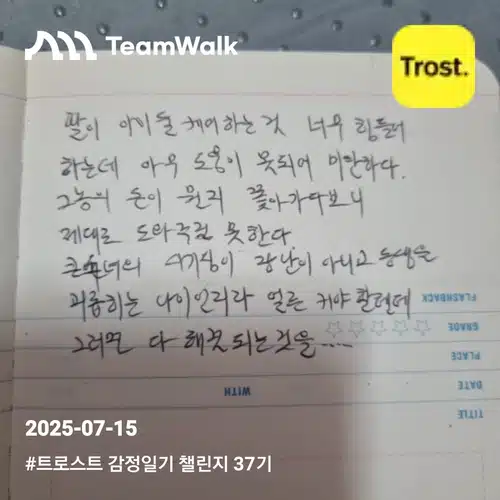 TeamWalk
Trost.
딸이 아이들 케어하는 것 너무 힘들어
하는데 아무 도움이 못되어 미안하다.
그놈의 돈이 뭔지 쫓아가다보니
제대로 도와주질 못한다.
큰손녀의 시기심이 장난이 아니고 동생을
괴롭히는 나이인리라 얼른 커야 할텐데
그러면 다 해꼿되는것을....
FLASHBACK
GRADE
PLACE
DATE
WITH
TITLE
2025-07-15
#트로스트 감정일기 챌린지 37기